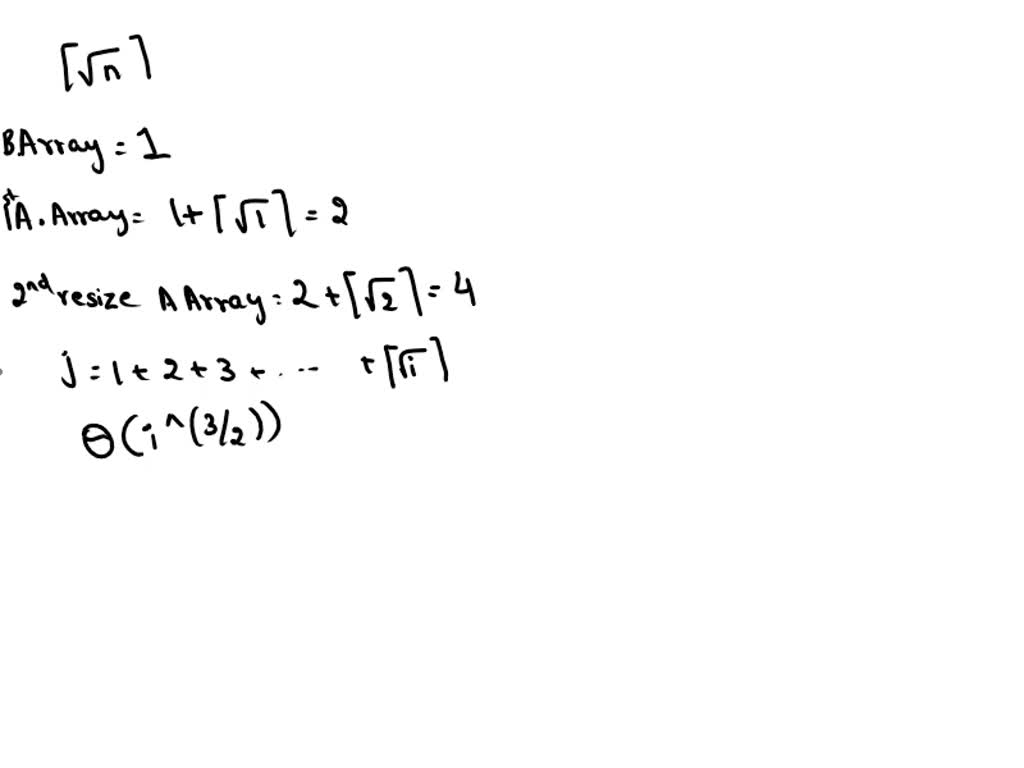 ⌈√n⌉
BArray = 1
1st A. Array = 1 + ⌈√1⌉ = 2
2nd resize A Array = 2 + ⌈√2⌉ = 4
j = 1 + 2 + 3 + ..... + ⌈√i⌉
Θ(i^(3/2))